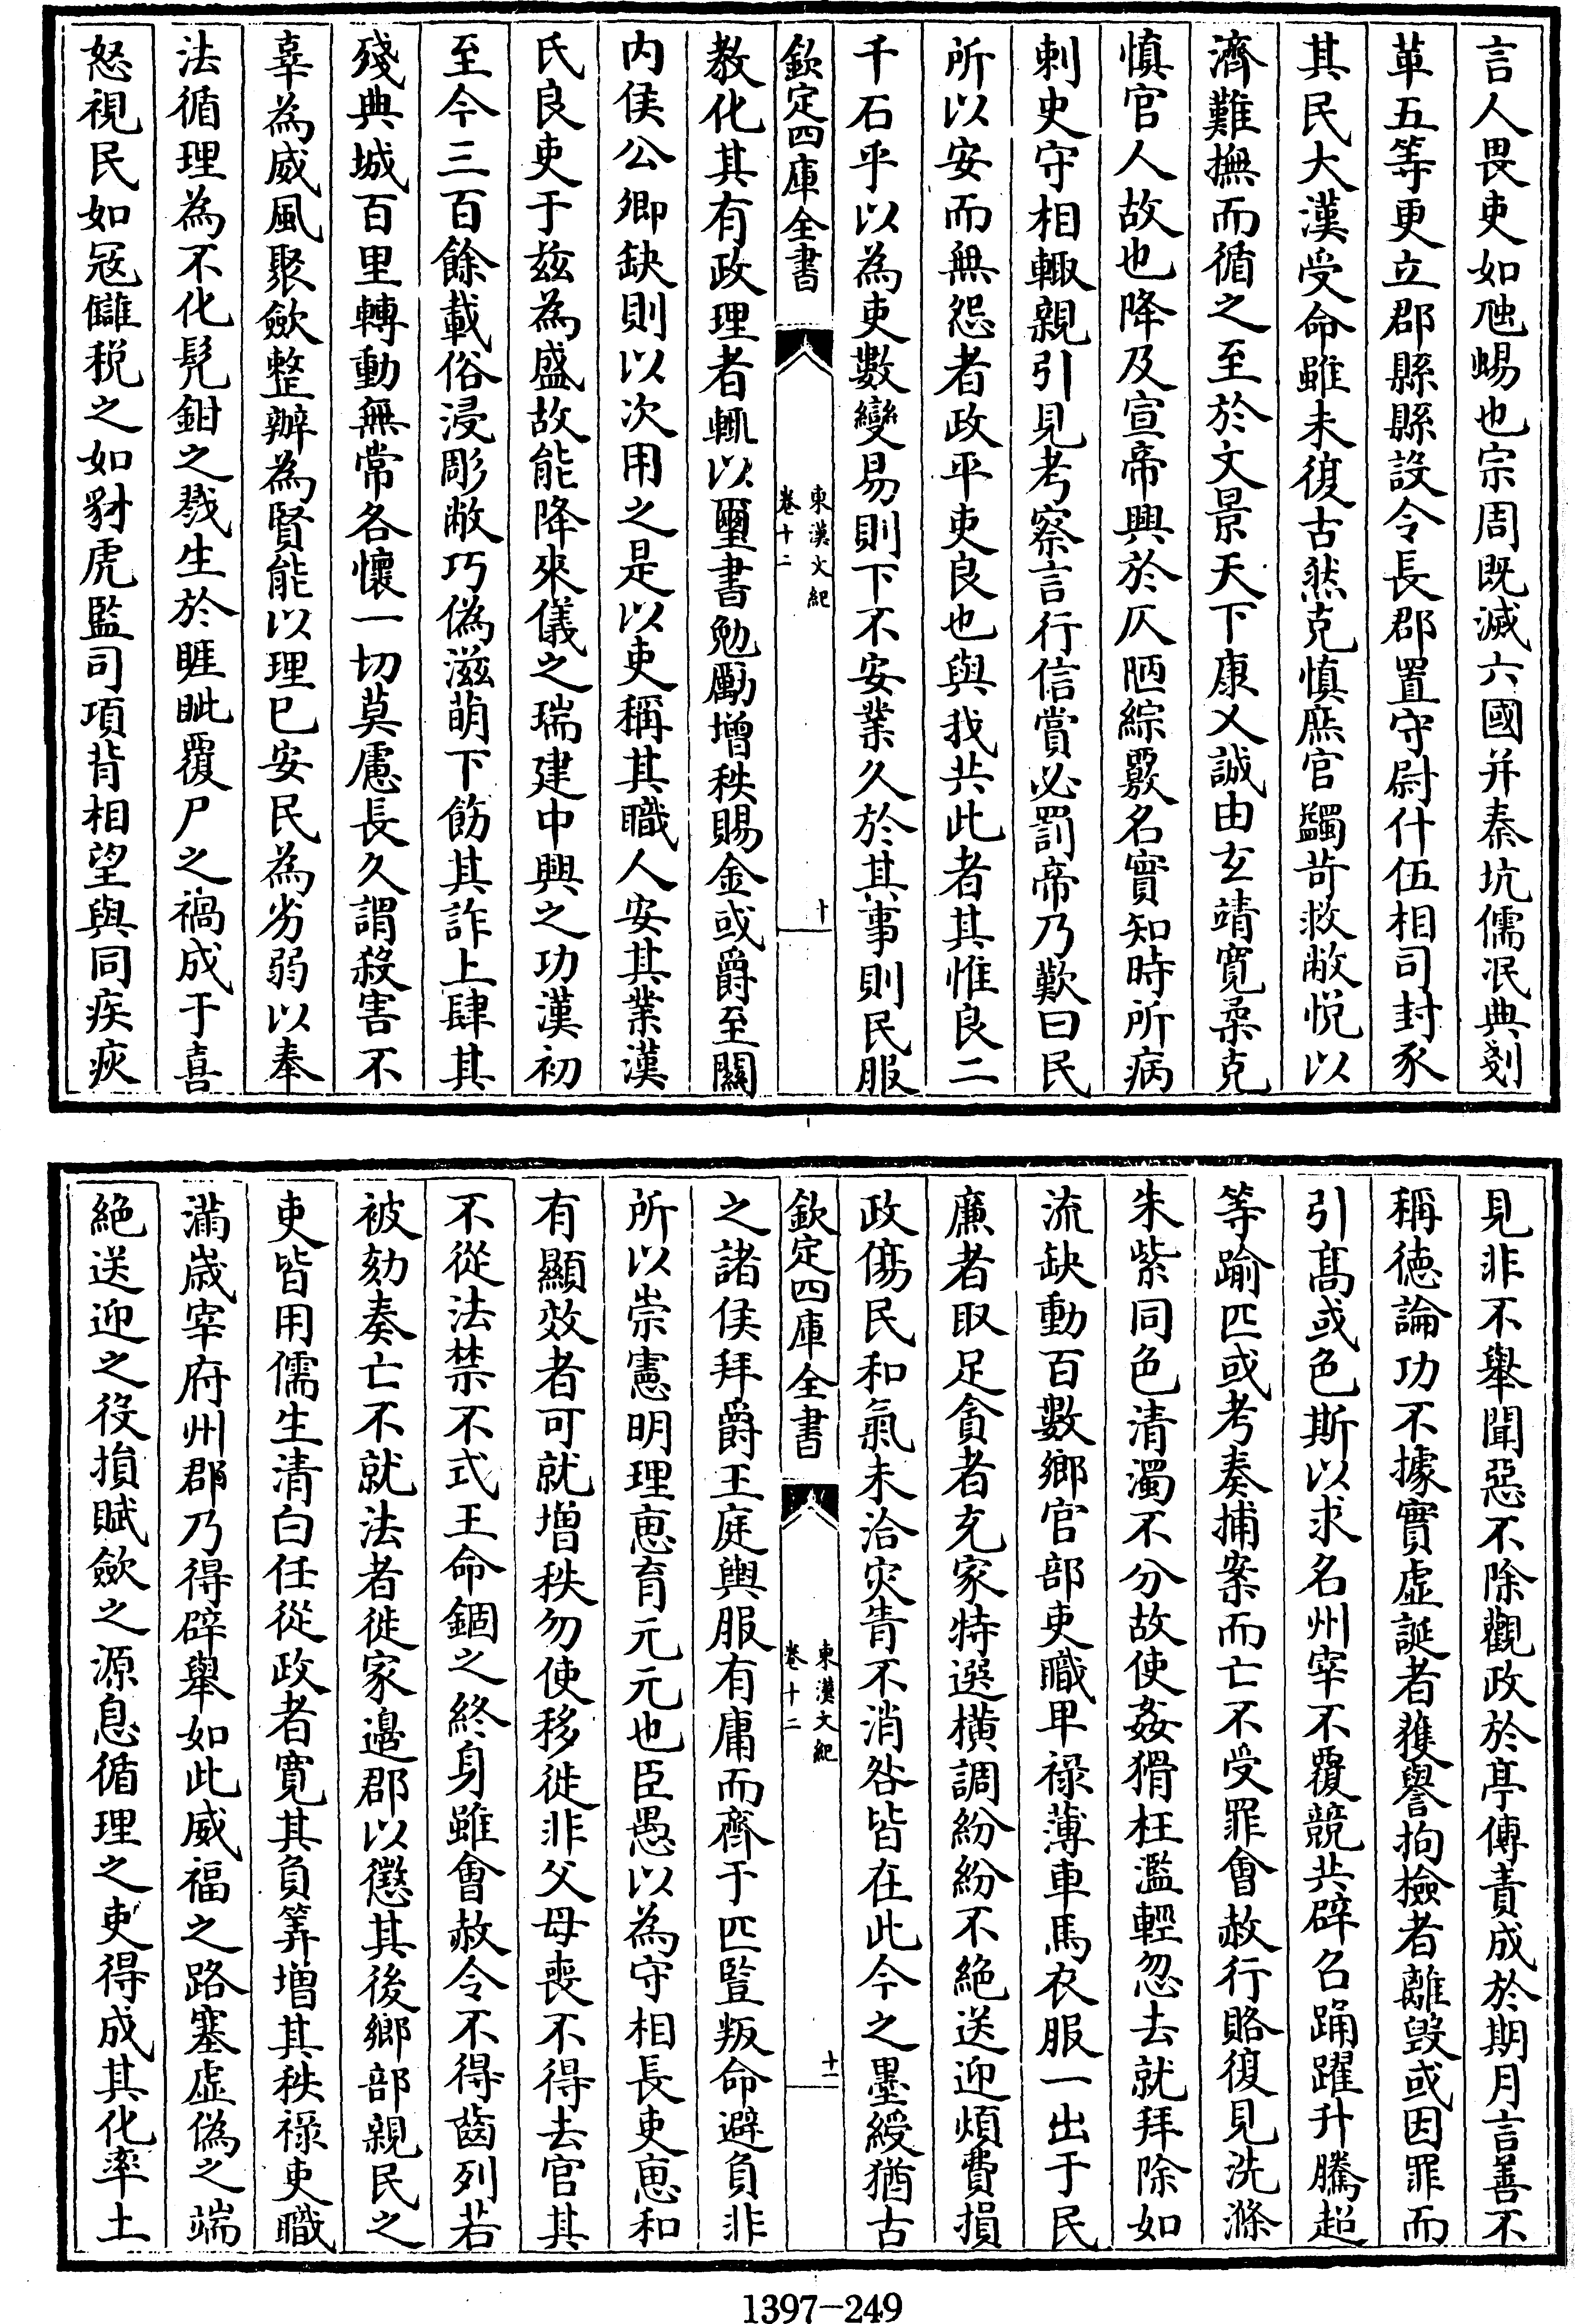 言人畏吏如虺蜴也宗周既滅六國并秦坑儒泯典剗
革五等更立郡縣縣設令長郡置守尉什伍相司封豕
其民大漢受命雖未復古然克慎庶官蠲苛救敝悅以
濟難撫而循之至於文景天下康乂誠由玄靖寛柔克
慎官人故也降及宣帝興於仄陋綜覈名實知時所病
刺史守相輙親引見考察言行信賞必罰帝乃歎曰民
所以安而無怨者政平吏良也與我共此者其惟良二
千石乎以為吏數變易則下不安業久於其事則民服
欽定四庫全書
東漢文紀
卷十二
十
教化其有政理者輒以璽書勉勵增秩賜金或爵至關
内侯公卿缺則以次用之是以吏稱其職人安其業漢
氏良吏于兹為盛故能降來儀之瑞建中興之功漢初
至今三百餘載俗浸彫敝巧偽滋萌下飭其詐上肆其
殘典城百里轉動無常各懷一切莫慮長久謂殺害不
辜為威風聚斂整辦為賢能以理已安民為劣弱以奉
法循理為不化髠鉗之戮生於睚眦覆尸之禍成于喜
怒視民如冦讎税之如豺虎監司項背相望與同疾疢
見非不舉聞惡不除觀政於亭傳責成於期月言善不
稱徳論功不據實虛誕者獲譽拘檢者離毁或因罪而
引髙或色斯以求名州宰不覆競共辟召踊躍升騰超
等踰匹或考奏捕案而亡不受罪會赦行賂復見洗滌
朱紫同色清濁不分故使姦猾枉濫輕忽去就拜除如
流缺動百數鄉官部吏職卑禄薄車馬衣服一出于民
廉者取足貪者充家特選横調紛紛不絶送迎煩費損
政傷民和氣未洽灾眚不消咎皆在此今之墨綬猶古
欽定四庫全書
東漢文紀
卷十二
十一
之諸侯拜爵王庭輿服有庸而齊于匹豎叛命避負非
所以崇憲明理恵育元元也臣愚以為守相長吏恵和
有顯效者可就增秩勿使移徙非父母喪不得去官其
不從法禁不式王命錮之終身雖會赦令不得齒列若
被劾奏亡不就法者徙家邊郡以懲其後鄉部親民之
吏皆用儒生清白任從政者寛其負筭增其秩禄吏職
滿歲宰府州郡乃得辟舉如此威福之路塞虛偽之端
絶送迎之役損賦斂之源息循理之吏得成其化率土
1397-249